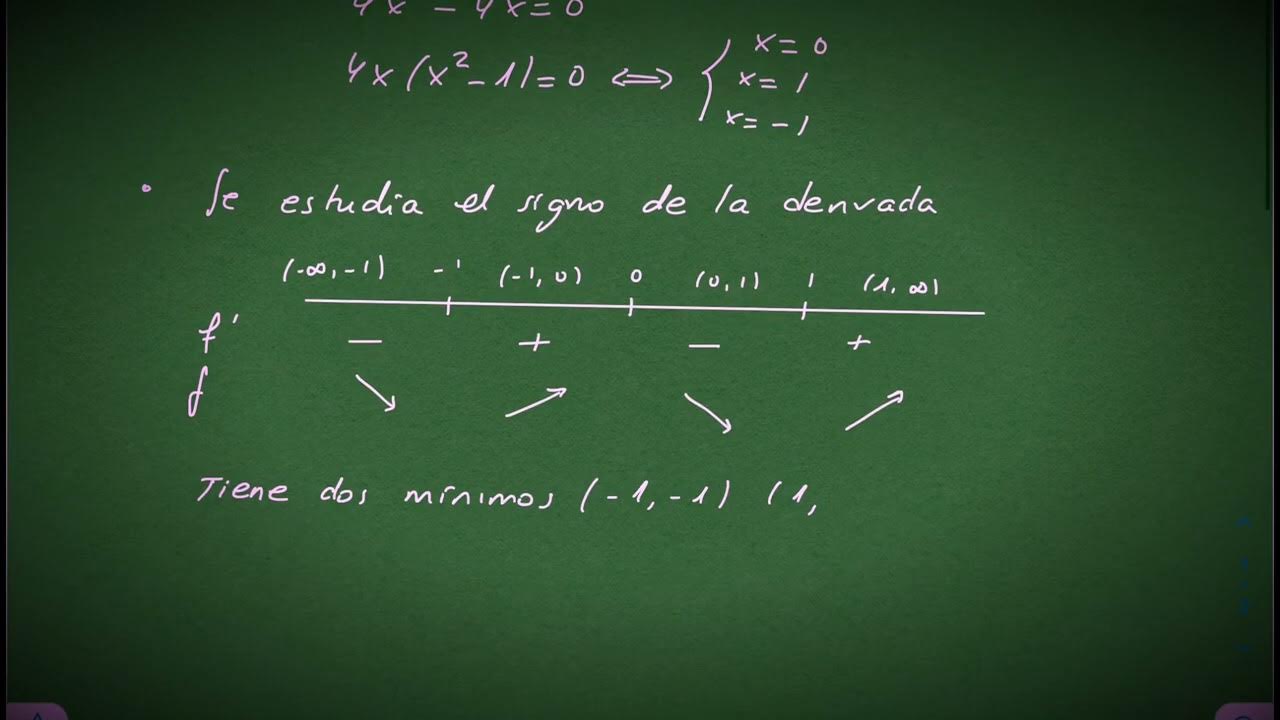 4x - 4x = 0
4x(x² - 1) = 0 ⟺ { x = 0
x = 1
x = -1
• Se estudia el signo de la derivada
(-∞, -1) -1 (-1, 0) 0 (0, 1) 1 (1, ∞)
f' - + - +
f ↘ ↗ ↘ ↗
Tiene dos mínimos (-1, -1) (1,